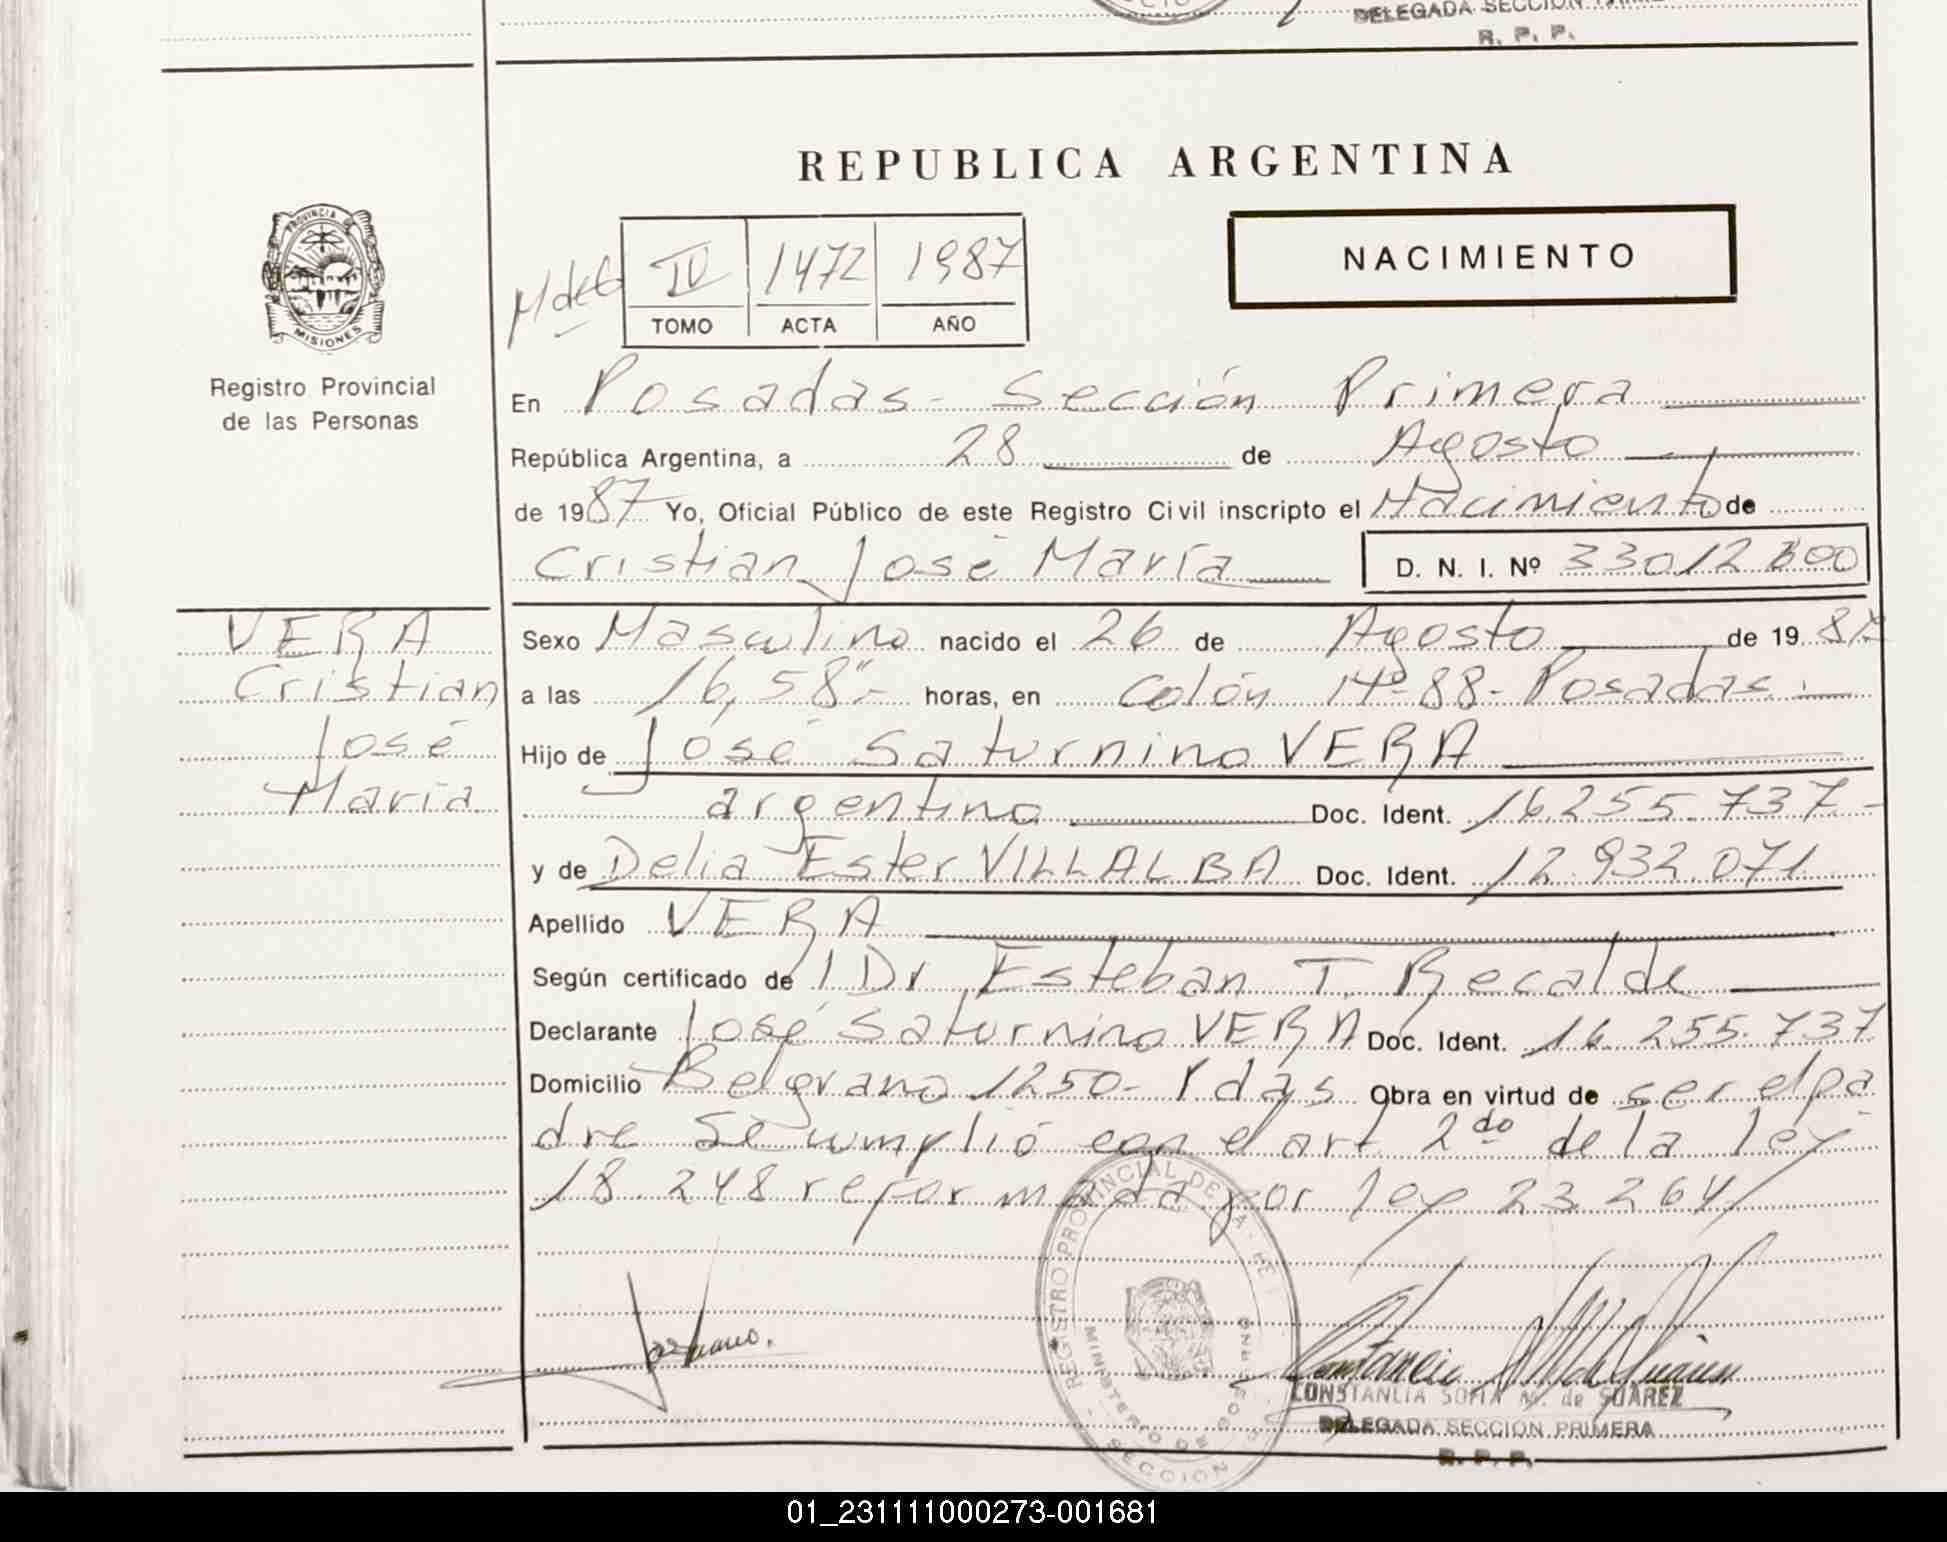 DELEGADA SECCION
R. P. P.
REPUBLICA ARGENTINA
NACIMIENTO
IV 1472 1987
TOMO ACTA AÑO
PROVINCIA DE
MISIONES
Registro Provincial
de las Personas
En Posadas - Sección Primera
República Argentina, a 28 de Agosto
de 1987 Yo, Oficial Público de este Registro Civil inscripto el Nacimiento de
Cristian José María D. N. I. Nº
VERA
Cristian
José
María
Sexo Masculino nacido el 26 de Agosto de 19 87
a las 16,58"- horas, en Colón Nº 88- Posadas.
Hijo de José Saturnino VERA
argentino Doc. Ident. 16.255.737-
y de Delia Ester VILLALBA Doc. Ident. 12.932.071
Apellido VERA
Según certificado de l Dr Esteban T. Recalde
Declarante José Saturnino VERA Doc. Ident. 16.255.737
Domicilio Belgrano 1250- Pdas Obra en virtud de ser el pa
dre Se cumplió con el art 2do de la ley
18.248 reformada por ley 23.264/
REGISTRO PROVINCIAL DE LA
MINISTERIO DE GOBIERNO
SECCION
CONSTANCIA SOFIA M. de SUAREZ
DELEGADA SECCION PRIMERA
R. P. P.
01_231111000273-001681